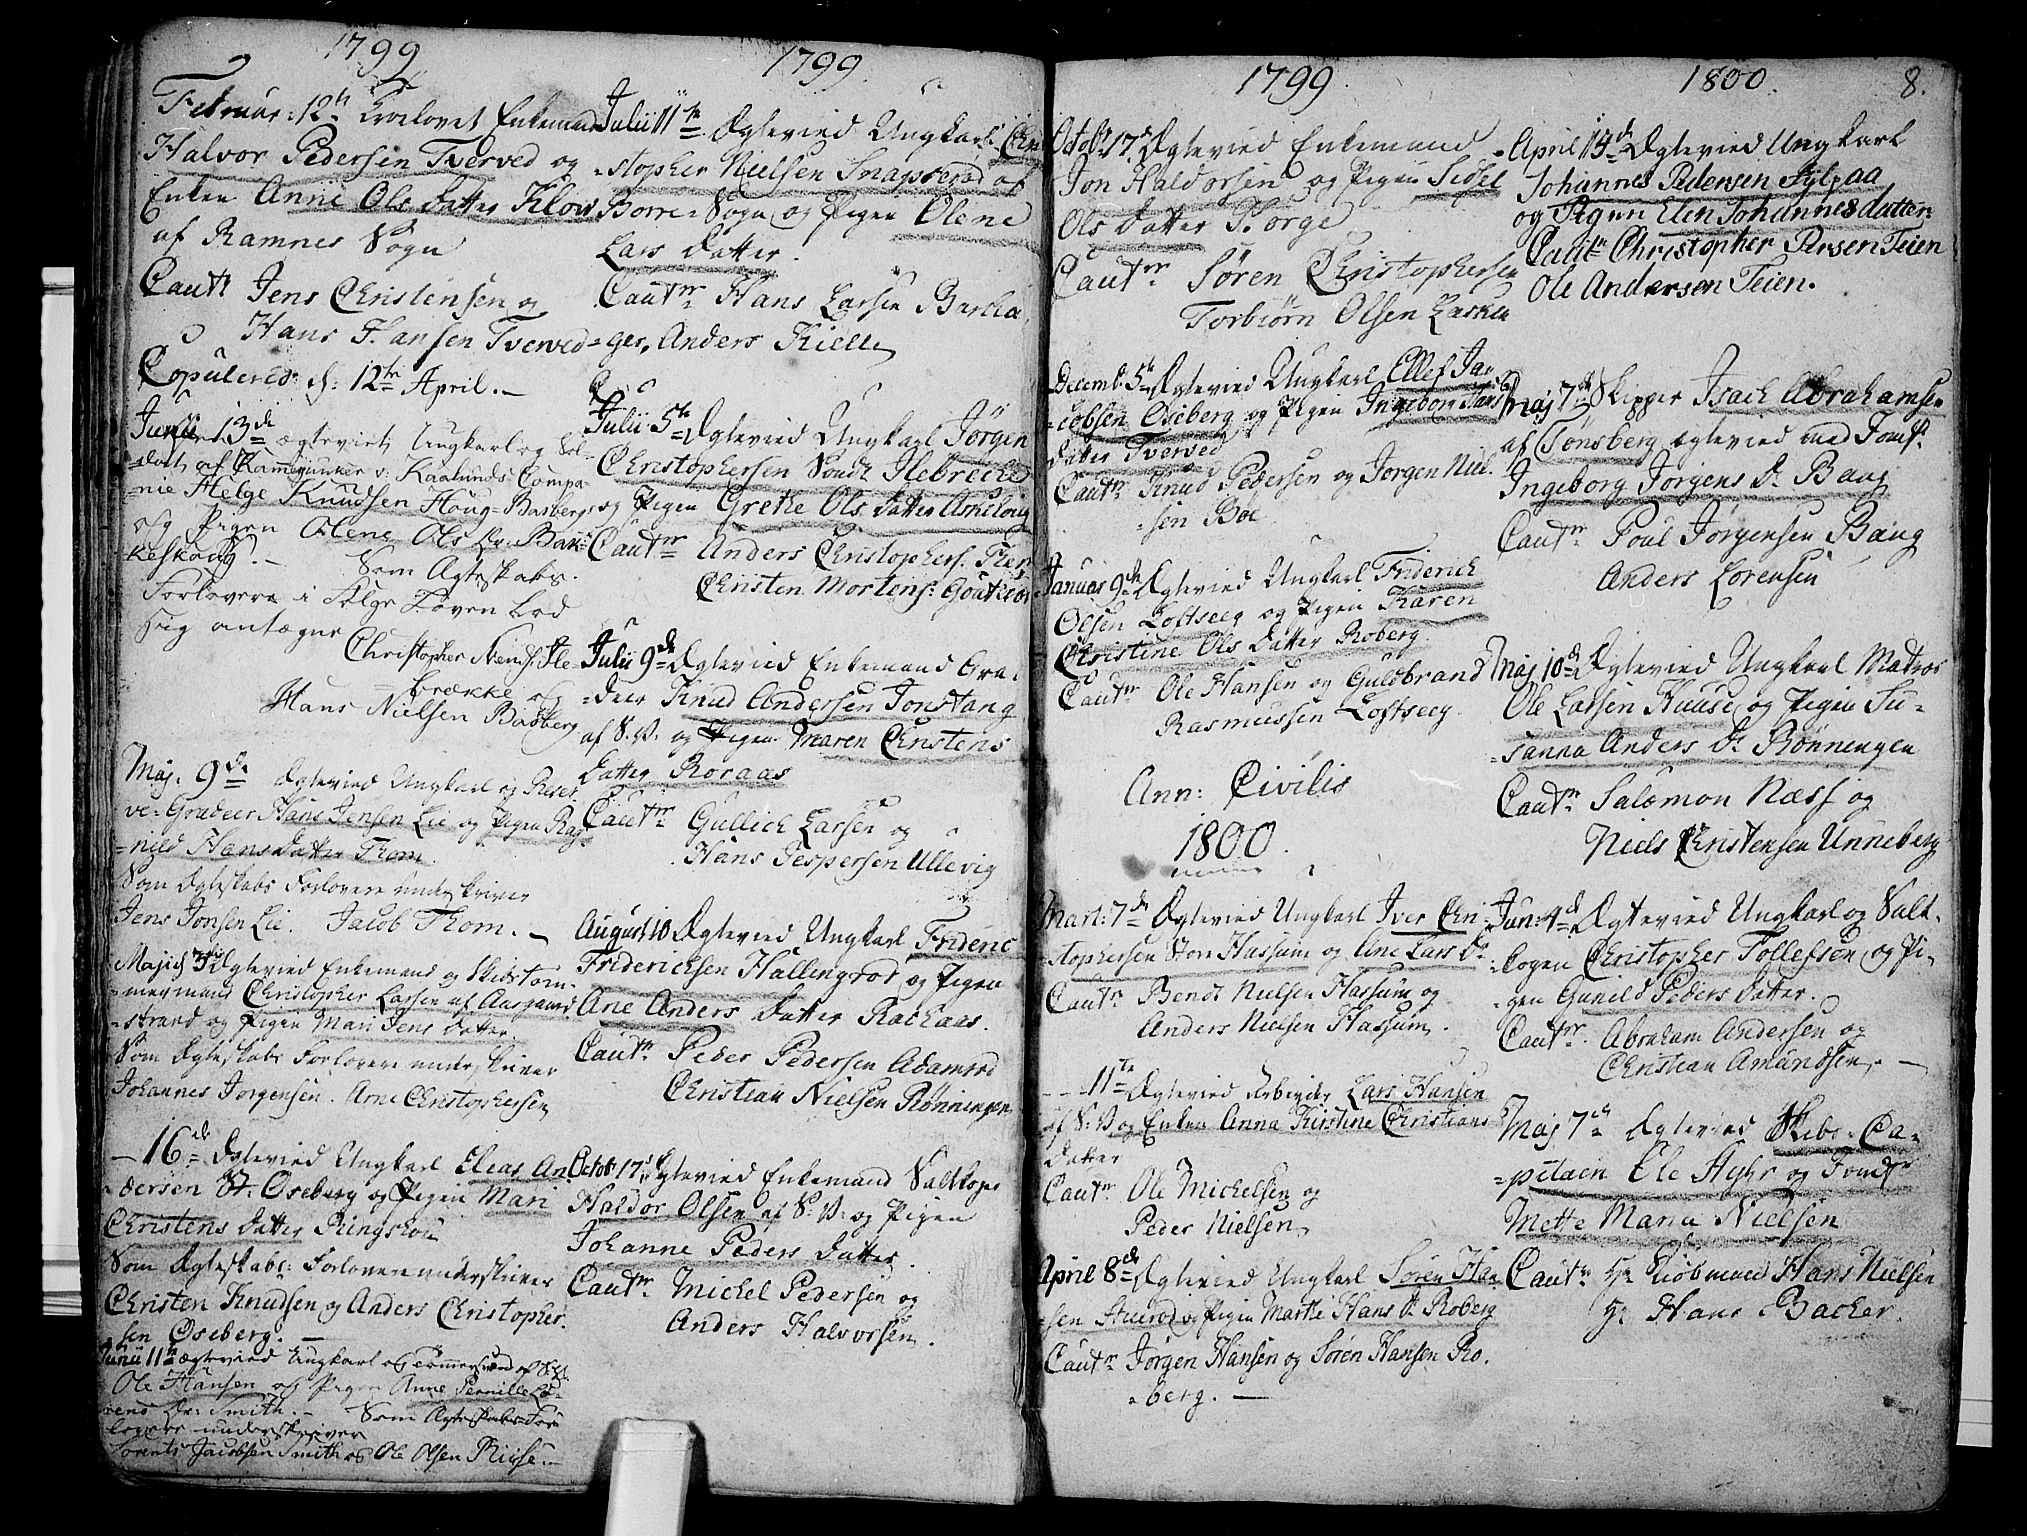 1799
Februar: 12te Trolovet Enkemand
Halvor Pedersen Tverved og
Enken Anne Ols Datter Klow
af Ramnes Sogn
Caut: Jens Christensen og
Hans Hansen Tverved
Copulered: d: 12te April. -
Junii 13de ægteviet Ungkarl og Sol-
-dat af Kammerjunker v. Kaalunds Compa-
-nie Helge Knudsen Houg-Basberg
og Pigen Olene Ols Dr: Bak-
keskoug. - Som Ægteskabs.
Forlovere i Følge Loven lod
sig antægne
Christopher Ile-
brække og
Hans Nielsen Basberg
Maj. 9de Ægteviet Ungkarl og Reser
ve-Gradeer Hans Jensen Lie og Pigen Rag-
-nild Hans Datter Thom.
Som Ægteskabs Forlovere underskriver
Jens Jonsen Lie. Jacob Thom. -
Ægteviet Enkemand og Skibstøm-
-mermand Christopher Larsen af Aasgaard
-strand og Pigen Mari Jens Datter.
Som Ægteskabs Forlovere underskriver
Johannes Jørgensen. Arne Christophersen
- 16de Ægteviet Ungkarl Elias An-
-dersen St. Oseberg og Pigen Mari
Christens Datter Ringshou
Som Ægteskabs: Forlovere underskriver
Christen Knudsen og Anders Christopher-
sen Oseberg. -
Junii 11te ægteviet Ungkarl og Tømmermand af
Ole Hansen og Pigen Anne Pernille Lo-
rens Dr: Smith. - Som Ægteskabs-For-
lovere underskriver
Lorents Jacobsen Smith og Ole Olsen Riise -
1799
Julii 11te Ægteviet Ungkarl Chri-
-stopher Nielsen Snapserød af
Borre-Sogn og Pigen Olene
Lars Datter.
Cautnr Hans Larsen Barka-
-ger, Anders Kielle
Julii 5te Ægteviet Ungkarl Jörgen
Christophersen Sondr Ilebrecke
og Pigen Grethe Ols Datter Askeloug
Cautnr Anders Christophers.
Christen Mortens:
Julii 9de Ægteviet Enkemand Gra-
-deer Knud Andersen Jonstang
af S.V: og Pigen Maren Christens
Datter Roraas
Cautnr Gullich Larsen og
Hans Jespersen Ullevig
August 10 Ægteviet Ungkarl Frideric
Fridericksen Hallingrod og Pigen
Ane Anders Datter Rachaas.
Cautnr Peder Pedersen Adamrod
Christian Nielsen Rönningen
Octob: 17de Ægteviet Enkemand Saltkoger
Haldor Olsen af S: V: og Pigen
Johanne Peders Datter.
Cautnr Michel Pedersen og
Anders Halvorsen.
1799.
Octob: 17de Ægteviet Enkemand
Jon Haldorsen og Pigen Sidsel
Ols Datter Borge
Cautnr Søren Christophersen
Torbiörn Olsen Lasken
Decemb: 5te Ægteviet Ungkarl Ellef Ja-
-cobsen Oseberg og Pigen Ingeborg Hans
Datter Tverved
Cautnr Knud Pedersen og Jørgen Niel-
-sen Bøe
Januar 9de Ægteviet Ungkarl Friderich
Olsen Loftseeg og Pigen Karen
Christine Ols Datter Roberg.
Cautnr Ole Hansen og Guldbrand
Rasmussen Loftseeg.
Ann: Civilis
1800.
Mart: 7de Ægteviet Ungkarl Iver Chri-
-stophersen Stor Hassum og Ane Lars Dr
Cautnr Bendt Nielsen Hassum og
Anders Nielsen Hassum.
- - 11te Ægteviet Arbeyder Lars Hansen
af S: V: og Enken Anna Kirstine Christians
Datter
Cautnr Ole Michelsen og
Peder Nielsen,
April 8de Ægteviet Ungkarl Søren Han-
-sen og Pigen Marthe Hans Dr Roberg
Cautnr Jörgen Hansen og Sören Hansen Ro-
-berg. -
1800. 8.
April 14de Ægteviet Ungkarl
Johannes Pedersen Fylpaa
og Pigen Elen Johannesdatter:
Cautnr Christopher Persen Teien
Ole Andersen Teien.
Maj 7de Skipper Isach Abrahamsen
af Tønsberg ægteviet med Jomfr.
Ingeborg Jörgens Dr Baug
Cautnr Poul Jörgensen Baug
Anders Lorensen
Maj. 10de Ægteviet Ungkarl Matros
Ole Larsen Huuse og Pigen Su-
-sanna Anders Dr Rønningen
Cautnr Salomon Næss og
Niels Christensen Unneberg
Jun: 4de Ægteviet Ungkarl og Salt-
-kogen Christopher Tollefsen og Pi-
-gen Gunild Peders Datter.
Cautnr. Abraham Andersen og
Christian Amundsen, -
Maj 7de Ægteviet Skibs-Ca-
-pitain Ole Hyhr og Jomfr
Mette Maria Nielsen
Cautnr Hr Kiøbmand Hans Nielsen
Hr Hans Backer.